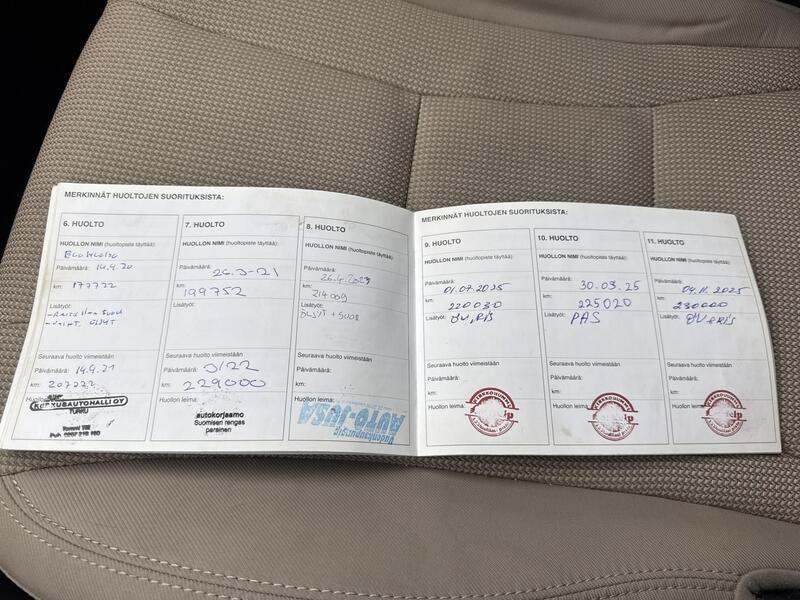 MERKINNÄT HUOLTOJEN SUORITUKSISTA:
6. HUOLTO
HUOLLON NIMI (huoltopiste täyttää):
Päivämäärä: 14.9.20
km: 177722
Lisätyöt:
Seuraava huolto viimeistään
Päivämäärä: 14.9.21
km: 207722
Huollon leima:
TURKU
7. HUOLTO
HUOLLON NIMI (huoltopiste täyttää):
Päivämäärä: 26.3-21
km: 199752
Lisätyöt:
Seuraava huolto viimeistään
Päivämäärä: 3/22
km: 229000
Huollon leima:
autokorjaamo
Suomisen rengas
parainen
8. HUOLTO
HUOLLON NIMI (huoltopiste täyttää):
Päivämäärä: 26.4.2023
km: 214009
Lisätyöt:
ÖLJYT + SUOD
Seuraava huolto viimeistään
Päivämäärä:
km:
Huollon leima:
Uudenkaupungin
AUTO-JUSA
MERKINNÄT HUOLTOJEN SUORITUKSISTA:
9. HUOLTO
HUOLLON NIMI (huoltopiste täyttää):
Päivämäärä: 01.07.2025
km: 220030
Lisätyöt:
Seuraava huolto viimeistään
Päivämäärä:
km:
Huollon leima:
10. HUOLTO
HUOLLON NIMI (huoltopiste täyttää):
Päivämäärä: 30.03.25
km: 225020
Lisätyöt: PAS
Seuraava huolto viimeistään
Päivämäärä:
km:
Huollon leima:
11. HUOLTO
HUOLLON NIMI (huoltopiste täyttää):
Päivämäärä: 04.11.2025
km: 230000
Lisätyöt:
Seuraava huolto viimeistään
Päivämäärä:
km:
Huollon leima: